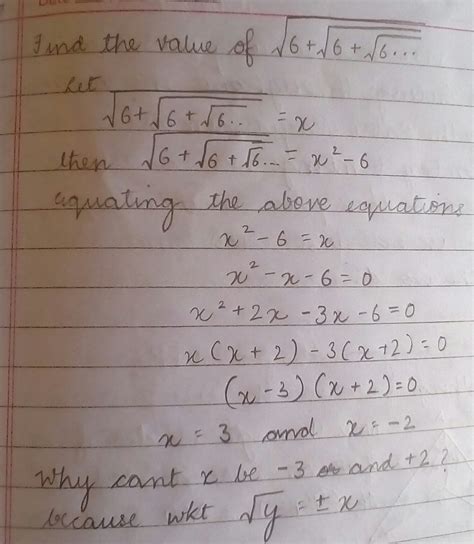 Find the value of √6+√6+√6...
Let
√6+√6+√6.. = x
then √6+√6+√6... = x²-6
equating the above equations
x²-6 = x
x²-x-6=0
x²+2x-3x-6=0
x(x+2)-3(x+2)=0
(x-3)(x+2)=0
x = 3 and x = -2
Why cant x be -3 and +2?
because wkt √y = ± x